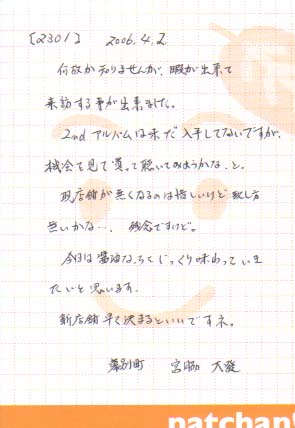 [2301] 2006.4.2
何故か知りませんが、暇が出来て
来訪する事が出来ました。
2nd アルバムは未だ入手してないですが、
機会を見て買って聴いてみようかな、と。
現店舗が無くなるのは惜しいけど致し方
無いかな…。残念ですけど。
今日は醤油なぞじっくり味わっていき
たいと思います。
新店舗早く決まるといいですネ。
幕別町 宮脇 大
patchan